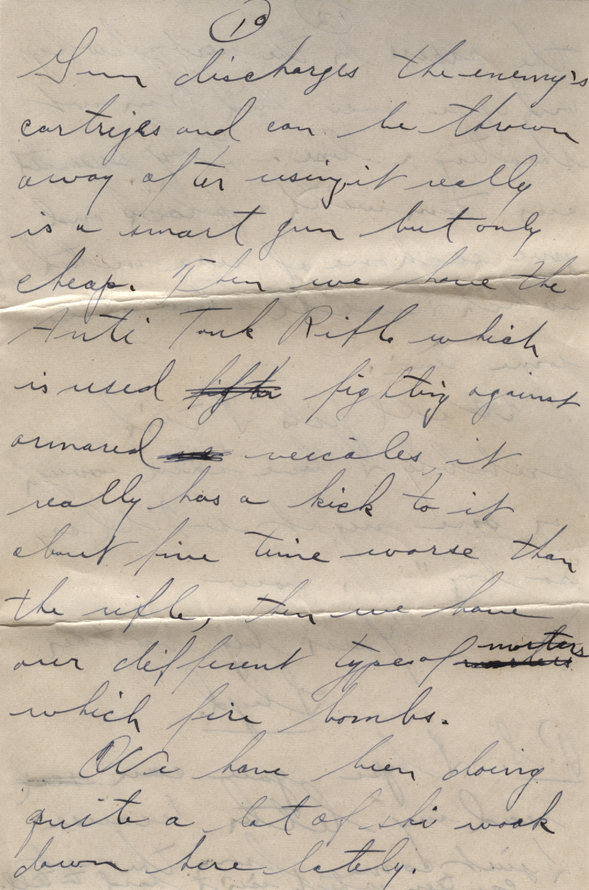 10
Gun discharges the enemy's
cartriges and can be thrown
away. after using it really
is a smart gun but only
cheap. Then we have the
Anti Tank Rifle which
is used fighting against
armared veicales it
really has a kick to it
about five time worse than
the rifle, then we have
our different type of morters
which fire bombs.
We have been doing
quite a lot of ski work
down here lately.